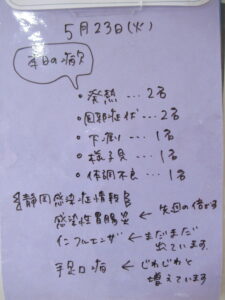 5月23日(火)
本日の病欠
・発熱…2名
・胃腸症状…2名
・下痢…1名
・様子見…1名
・体調不良…1名
静岡感染症情報
感染性胃腸炎 ← 先週の倍です
インフルエンザ ← まだまだ
出ています。
手足口病 ← じわじわと
増えています